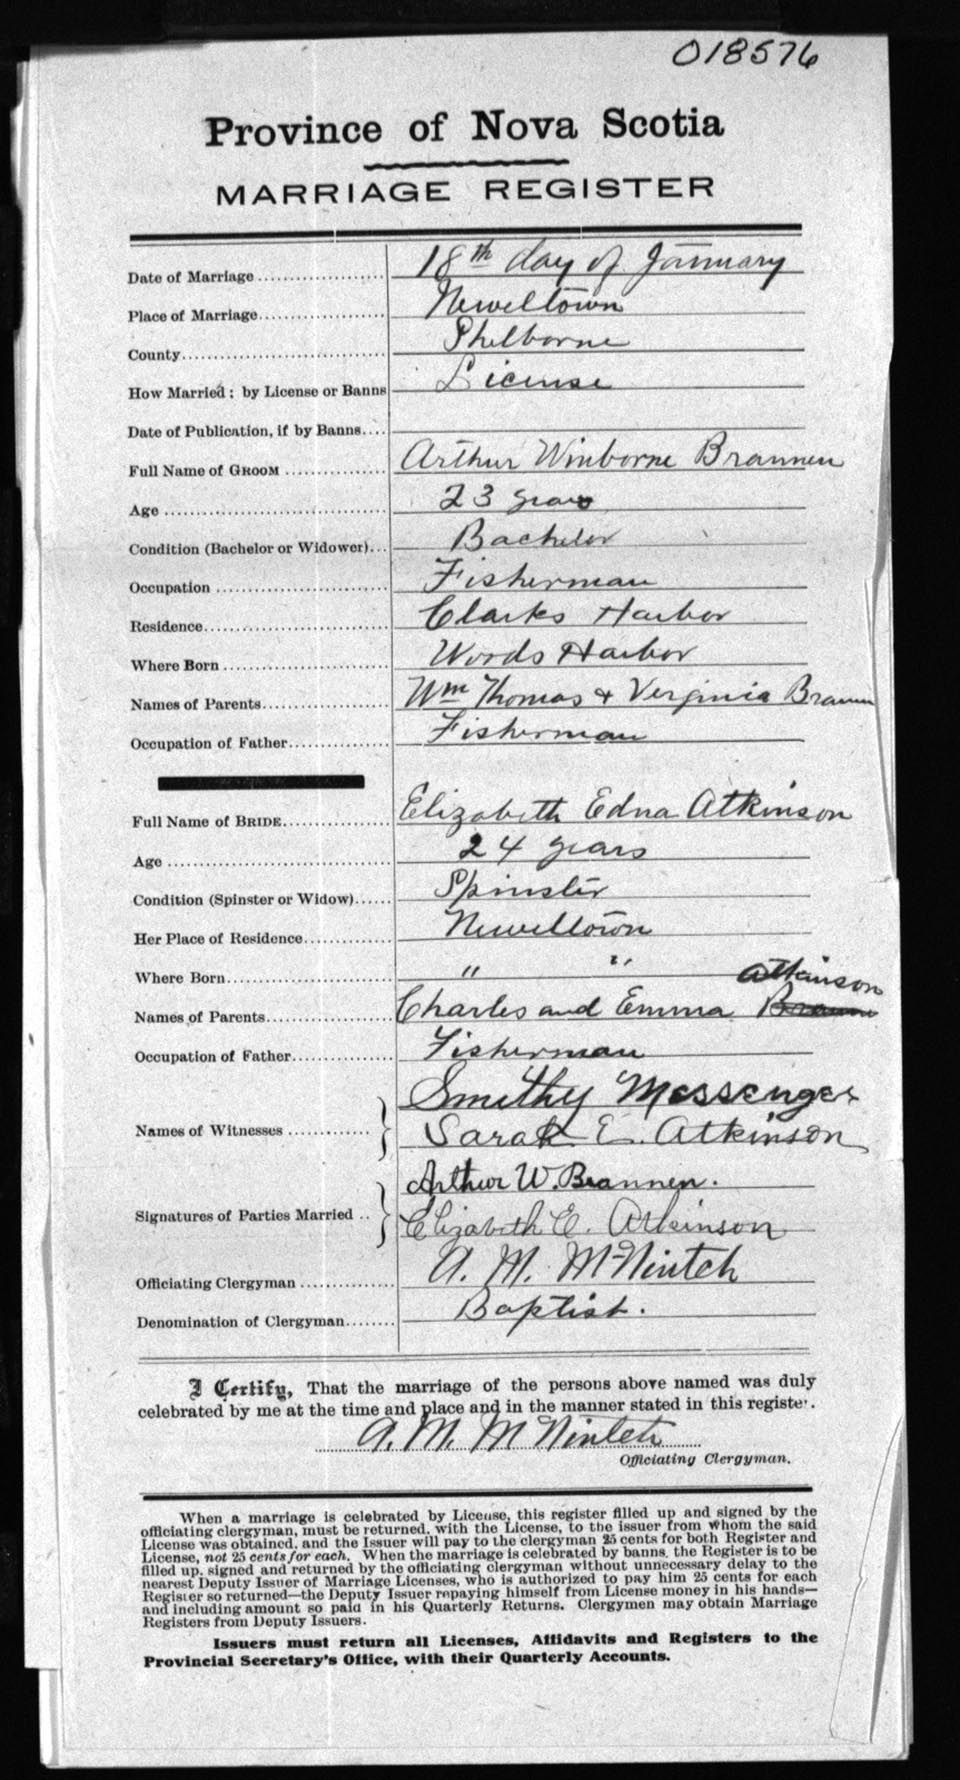 018576
Province of Nova Scotia
MARRIAGE REGISTER
Date of Marriage.................... 18th day of January
Place of Marriage.................... Newelltown
County................................ Shelborne
How Married: by License or Banns License
Date of Publication, if by Banns....
Full Name of GROOM ................ Arthur Winborne Brannen
Age ................................... 23 years
Condition (Bachelor or Widower)... Bachelor
Occupation ........................... Fisherman
Residence............................. Clarks Harbor
Where Born .......................... Woods Harbor
Names of Parents.................... Wm Thomas & Verginia Brannen
Occupation of Father................ Fisherman
Full Name of BRIDE.................. Elizabeth Edna Atkinson
Age ................................... 24 years
Condition (Spinster or Widow)...... Spinster
Her Place of Residence.............. Newelltown
Where Born.......................... " "
Atkinson
Names of Parents.................... Charles and Emma
Occupation of Father................ Fisherman
Smithy Messenger
Names of Witnesses .............
Sarah E. Atkinson
Arthur W. Brannen.
Signatures of Parties Married ..
Elizabeth E. Atkinson
Officiating Clergyman ............... A. M. McNintch
Denomination of Clergyman........ Baptist.
I Certify, That the marriage of the persons above named was duly
celebrated by me at the time and place and in the manner stated in this register.
A. M. McNintch
Officiating Clergyman.
When a marriage is celebrated by License, this register filled up and signed by the
officiating clergyman, must be returned, with the License, to the issuer from whom the said
License was obtained, and the Issuer will pay to the clergyman 25 cents for both Register and
License, not 25 cents for each. When the marriage is celebrated by banns, the Register is to be
filled up, signed and returned by the officiating clergyman without unnecessary delay to the
nearest Deputy Issuer of Marriage Licenses, who is authorized to pay him 25 cents for each
Register so returned—the Deputy Issuer repaying himself from License money in his hands—
and including amount so paid in his Quarterly Returns. Clergymen may obtain Marriage
Registers from Deputy Issuers.
Issuers must return all Licenses, Affidavits and Registers to the
Provincial Secretary's Office, with their Quarterly Accounts.